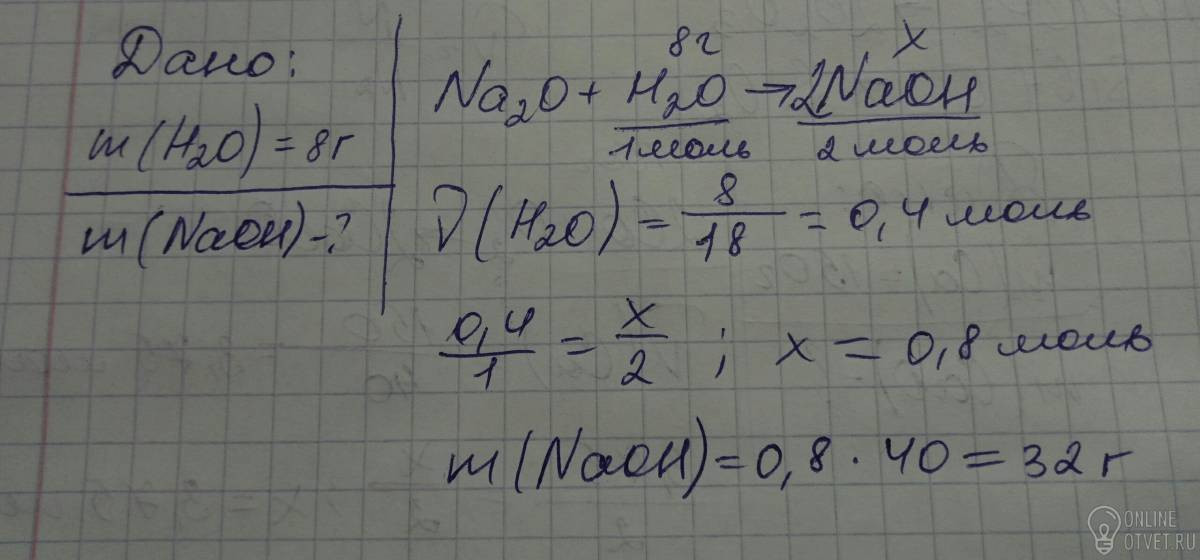 Дано:
m(H₂O) = 8г
m(NaOH) - ?
8г x
Na₂O + H₂O → 2NaOH
1моль 2 моль
ν(H₂O) = 8/18 = 0,4 моль
0,4/1 = x/2 ; x = 0,8 моль
m(NaOH) = 0,8 · 40 = 32 г
ONLINE
OTVET.RU